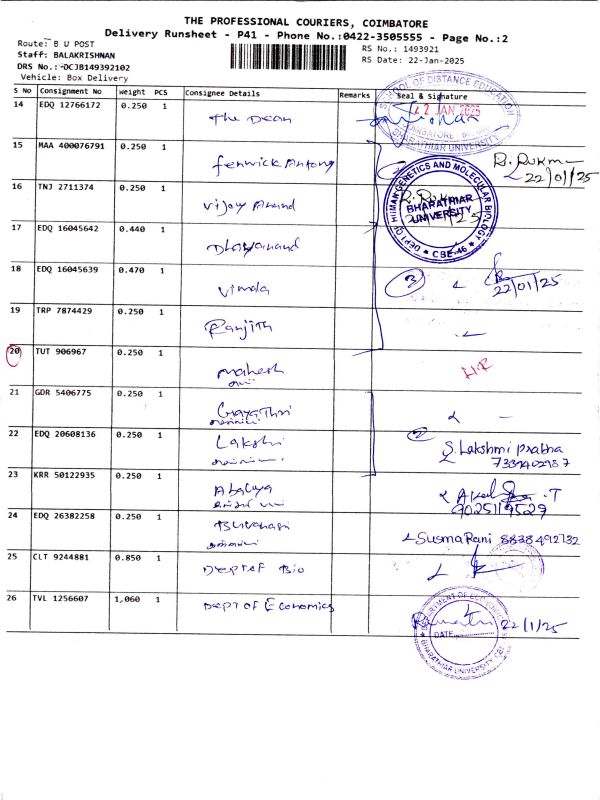 THE PROFESSIONAL COURIERS, COIMBATORE
Delivery Runsheet - P41 - Phone No.:0422-3505555 - Page No.:2
Route: B U POST
RS No.: 1493921
Staff: BALAKRISHNAN
RS Date: 22-Jan-2025
DRS No.: DCJB149392102
Vehicle: Box Delivery
S No Consignment No Weight PCS Consignee Details Remarks Seal & Signature
14 EDQ 12766172 0.250 1 The Dean
SCHOOL OF DISTANCE EDUCATION
22 JAN 2025
BHARATHIAR UNIVERSITY
15 MAA 400076791 0.250 1 fenwick Antony
22/01/25
16 TNJ 2711374 0.250 1 Vijay Anand
DEPT OF HUMAN GENETICS AND MOLECULAR BIOLOGY
BHARATHIAR UNIVERSITY
CBE-46
17 EDQ 16045642 0.440 1
18 EDQ 16045639 0.470 1 Vimala
3 22/01/25
19 TRP 7874429 0.250 1 Ranjith
20 TUT 906967 0.250 1 Mahesh
21 GDR 5406775 0.250 1 Gayathri
22 EDQ 20608136 0.250 1 Lakshi
2 S. Lakshmi Prabha
23 KRR 50122935 0.250 1
24 EDQ 26382258 0.250 1
SusmaRani 8838492732
25 CLT 9244881 0.850 1 Dept of Bio
26 TVL 1256607 1,060 1 Dept of Economics
22/1/25
DATE
BHARATHIAR UNIVERSITY CBE